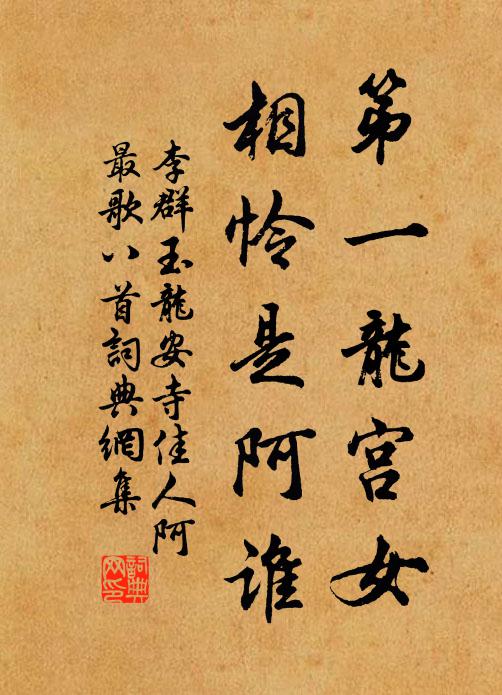 第一龍宫女
相怜是阿谁
李群玉龍安寺佳人阿
最歌八首詞典網集
詞典
网印